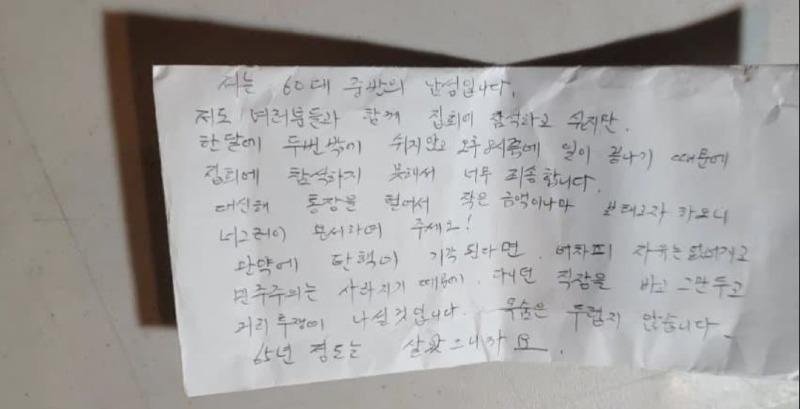 저는 60대 중반의 남성입니다.
저도 여러분들과 함께 집회에 참석하고 싶지만.
한달에 두번밖에 쉬지않고 오후8시쯕에 일이 끝나기 때문에
집회에 참석하지 못해서 너무 죄송합니다.
대신해 통장을 털어서 작은 금액이나마 보태고자 하오니
너그러이 용서하여 주세요!
만약에 탄핵이 기각된다면. 어차피 자유는 없어지고
민주주의는 사라지기 때문에. 다니던 직장을 바로 그만두고
거리투쟁에 나설것입니다. 목숨은 두렵지 않습니다
65년 정도는 살았으니까요.